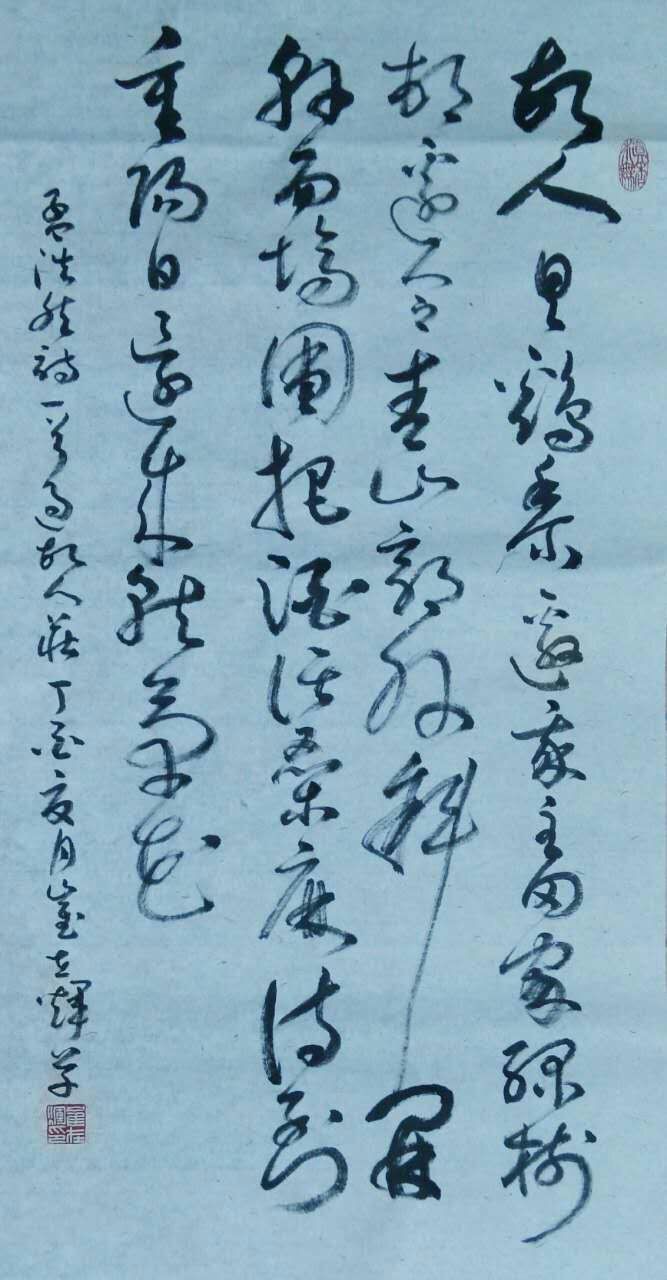 故人具鷄黍邀我至田家綠樹
村邊合青山郭外斜開
軒面場圃把酒話桑麻待到
重陽日還來就菊花
孟浩然詩一首過故人莊丁酉夏月崔輝草